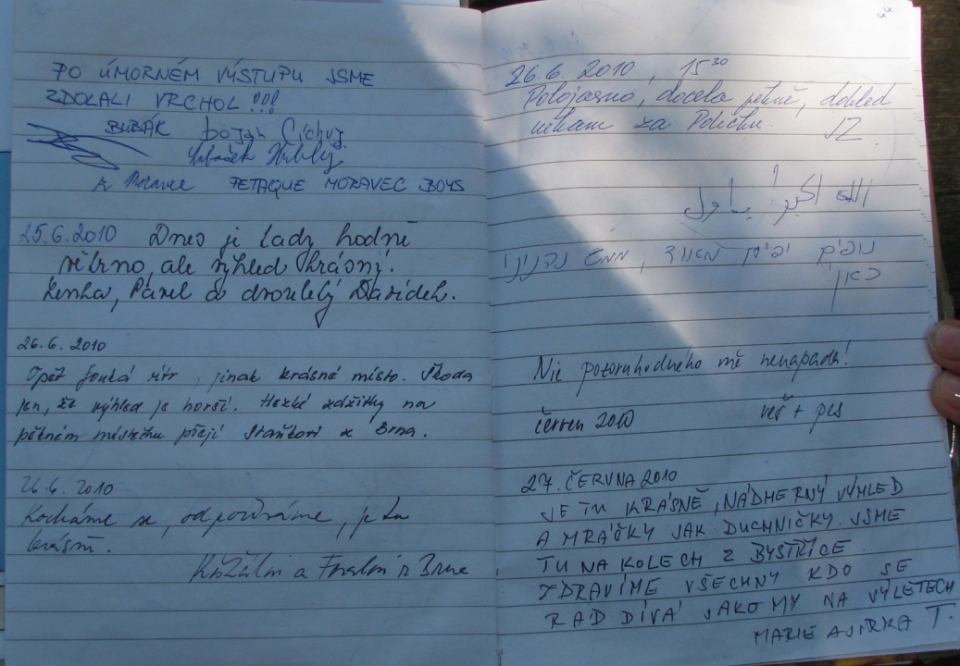 PO ÚMORNÉM VÝSTUPU JSME
ZDOLALI VRCHOL !!!
BUBÁK
PETAQUE MORAVEC BOYS
25.6.2010 Dnes je tady hodně
větrno, ale výhled krásný.
Lenka, Pavel a dvouletý Davídek.
26.6.2010
Opět fouká vítr, jinak krásné místo. Škoda
jen, že výhled je horší. Hezké zážitky na
pěkném místečku přejí z Brna.
26.6.2010
Kocháme se, odpočíváme, je tu
krásně.
a z Brna
26.6.2010, 15³⁰
Polojasno, docela pěkně, dohled
někam za Poličku. JZ
الله اكبر
נופים יפים מאוד,
כאן
Nic pozoruhodného mě nenapadá!
červen 2010 + pes
27. ČERVNA 2010
JE TU KRÁSNĚ, NÁDHERNÝ VÝHLED
A MRÁČKY JAK DUCHNIČKY. JSME
TU NA KOLECH Z BYSTŘICE.
ZDRAVÍME VŠECHNY KDO SE
RÁD DÍVÁ JAKO MY NA VÝLETECH
MARIE A JIRKA T.